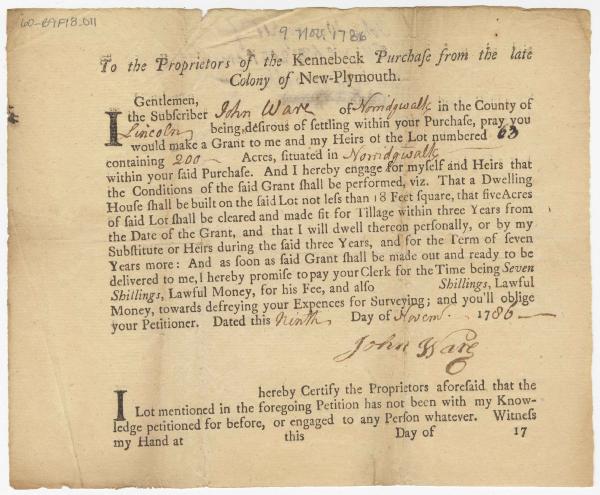 60-89F18.011
9 Nov. 1786
To the Proprietors of the Kennebeck Purchase from the late
Colony of New-Plymouth.
Gentlemen,
I the Subscriber John Ware of Norridgwalk in the County of
Lincoln being desirous of settling within your Purchase, pray you
would make a Grant to me and my Heirs of the Lot numbered 63
containing 200 Acres, situated in Norridgwalk
within your said Purchase. And I hereby engage for myself and Heirs that
the Conditions of the said Grant shall be performed, viz. That a Dwelling
House shall be built on the said Lot not less than 18 Feet square, that five Acres
of said Lot shall be cleared and made fit for Tillage within three Years from
the Date of the Grant, and that I will dwell thereon personally, or by my
Substitute or Heirs during the said three Years, and for the Term of seven
Years more: And as soon as said Grant shall be made out and ready to be
delivered to me, I hereby promise to pay your Clerk for the Time being Seven
Shillings, Lawful Money, for his Fee, and also Shillings, Lawful
Money, towards defreying your Expences for Surveying; and you'll oblige
your Petitioner. Dated this Ninth Day of Novem. 1786
John Ware
I hereby Certify the Proprietors aforesaid that the
Lot mentioned in the foregoing Petition has not been with my Know-
ledge petitioned for before, or engaged to any Person whatever. Witness
my Hand at this Day of 17